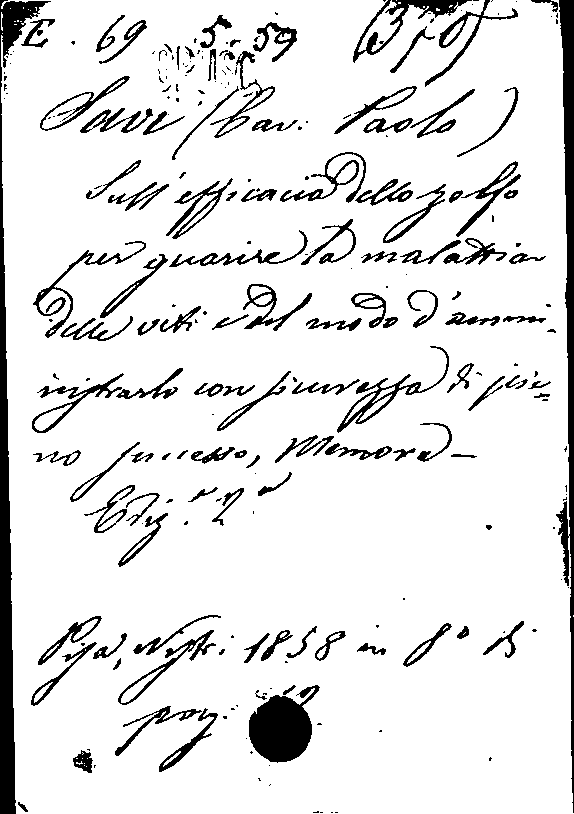 E. 69 5. 59 (370)
OPUSC
Savi (Cav: Paolo)
Sull'efficacia dello zolfo
per guarire la malattia
delle viti e del modo d'ammi-
nistrarlo con sicurezza di pie=
no successo, Memoria –
Ediz.e 2a
Pisa, Nistri 1858 in 8o di
pag.